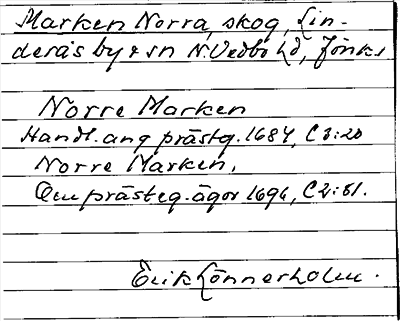 Marken Norra, skog, Lin-
deräs by & sn N. Vedbo hd, Jönk.
Norre Marken
Handl. ang prästg. 1687, C 3:20
Norre Marken,
Om prästeg. ägor 1696, C 2:81.
Erik Lönnerholm.